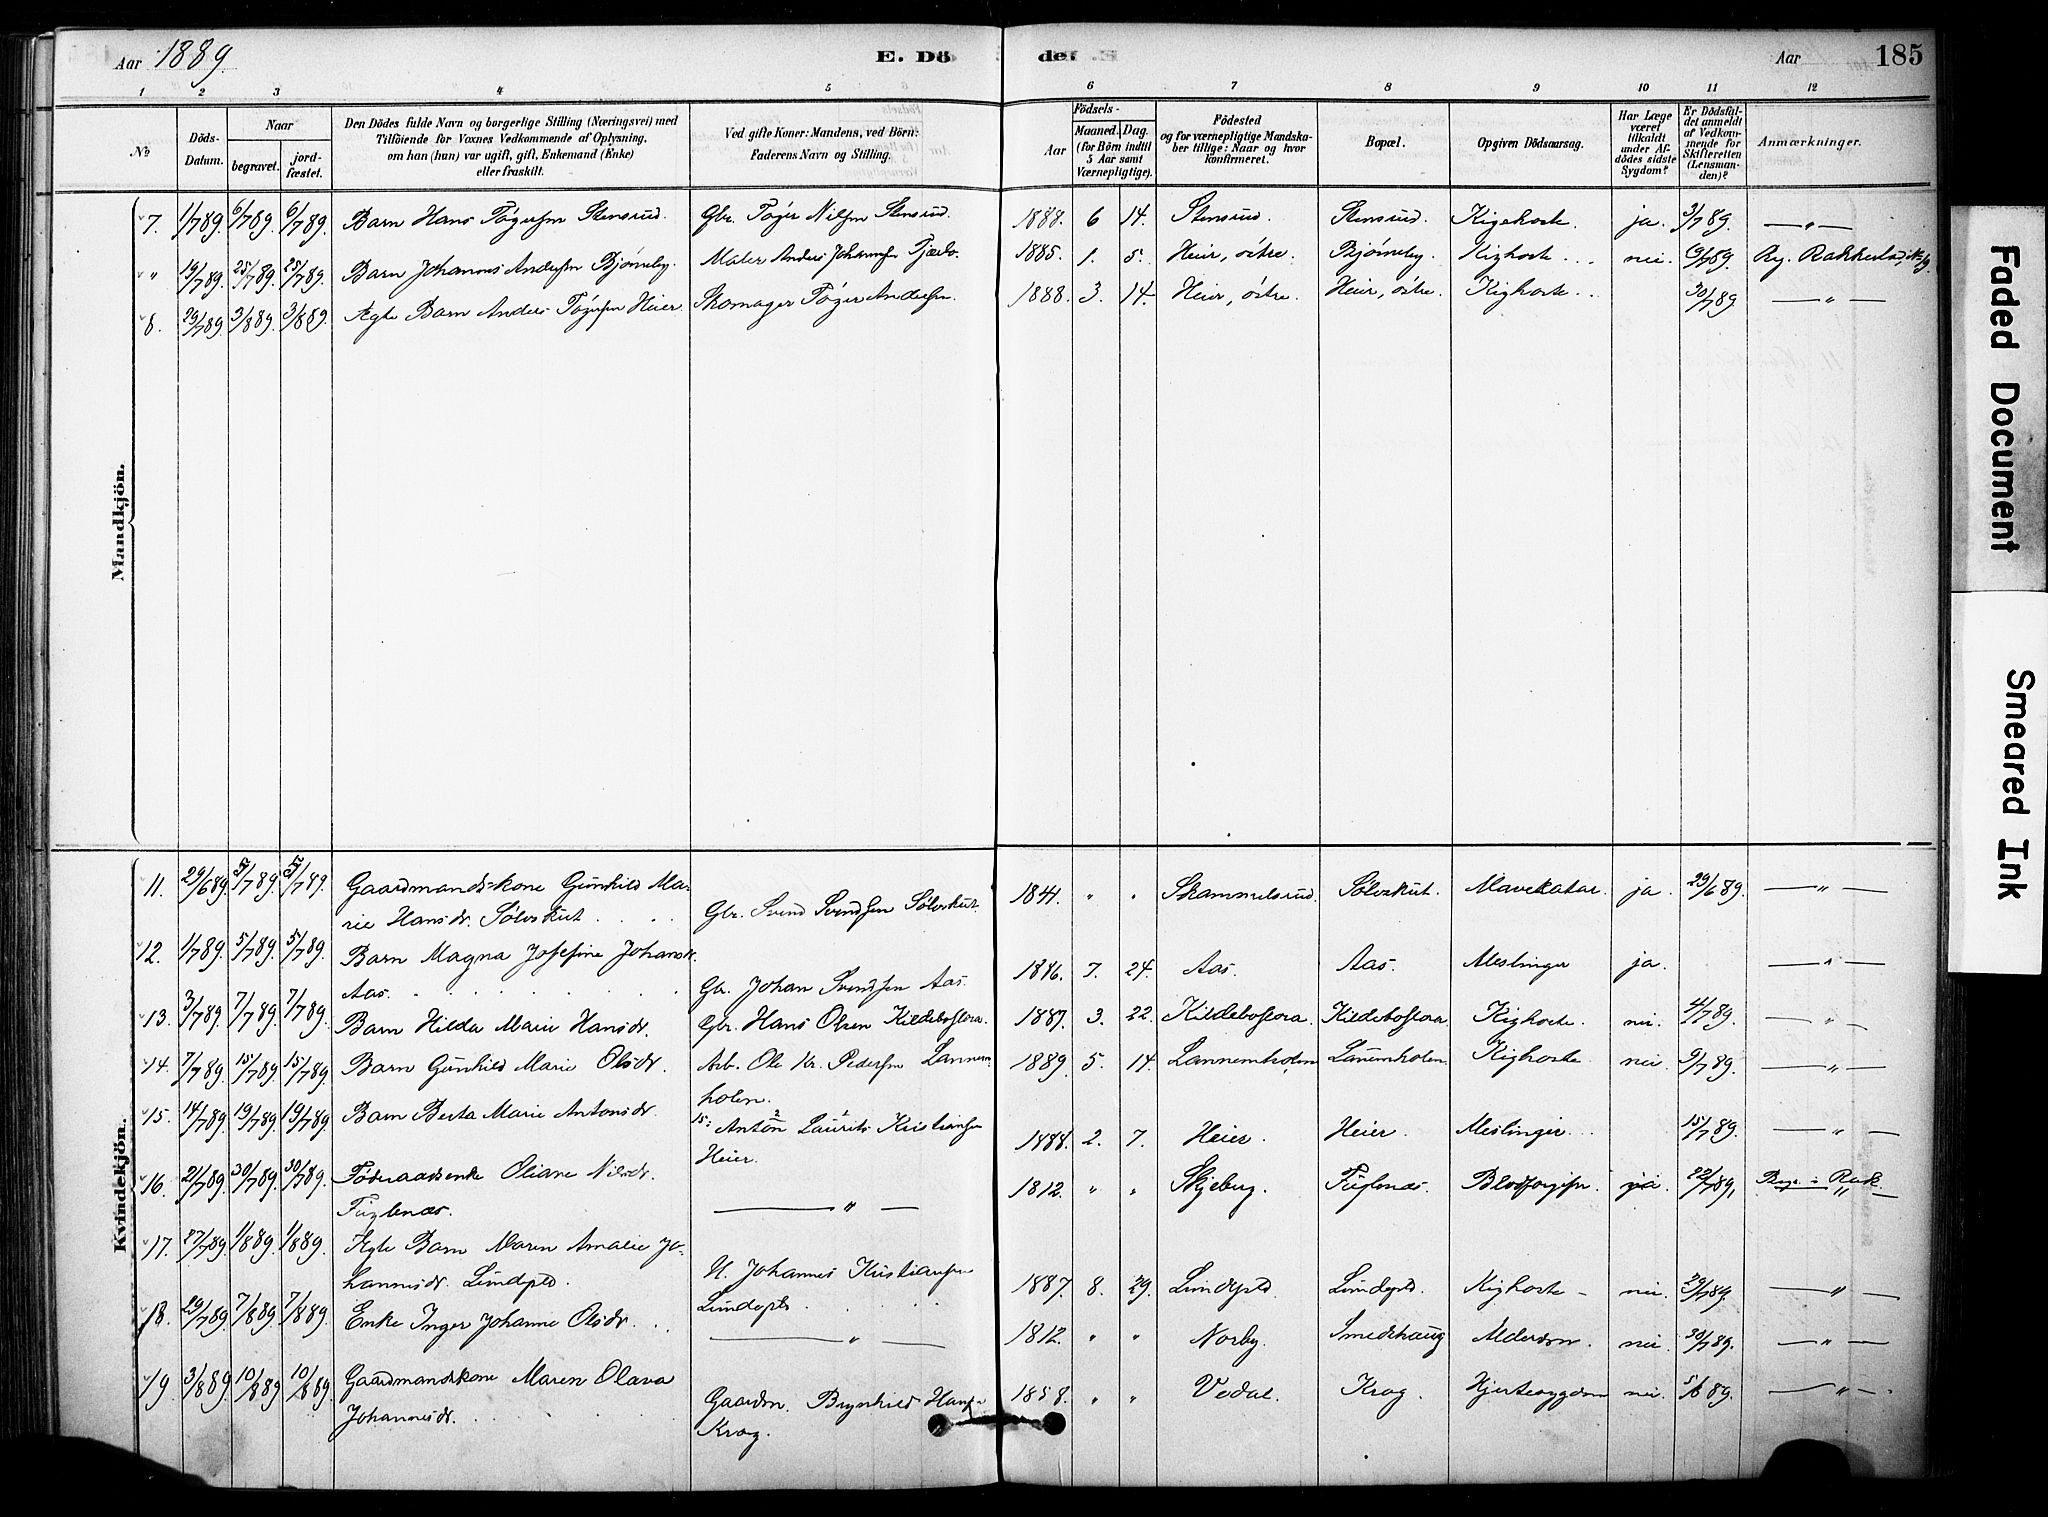 Aar 1889
E. Dö
de.
Aar
185
1 2 3 4 5 6 7 8 9 10 11 12
No
Döds-Datum.
Naar
begravet.
jordfæstet.
Den Dödes fulde Navn og borgerlige Stilling (Næringsvei) med
Tilföiende for Voxnes Vedkommende af Oplysning,
om han (hun) var ugift, gift, Enkemand (Enke)
eller fraskilt.
Ved gifte Koner: Mandens, ved Börn:
Faderens Navn og Stilling.
Födsels-
Aar
Maaned. Dag.
(for Börn indtil
5 Aar samt
Værnepligtige).
Födested
og for værnepligtige Mandskaber
tillige: Naar og hvor
konfirmeret.
Bopæl.
Opgiven Dödsaarsag.
Har Læge
været
tilkaldt
under Afdödes
sidste
Sygdom?
Er Dödsfaldet
anmeldt
af Vedkommende
for
Skifteretten
(Lensmanden)?
Anmærkninger.
Mandkjön.
7. 1/7 89. 6/7 89. 6/7 89. Barn Hans Tøgersen Stensrud. Gbr. Tøger Nilsen Stensrud. 1888. 6 14. Stensrud. Stensrud. Kighoste. ja. 3/7 89. — " —
" 19/7 89. 25/7 89. 25/7 89. Barn Johannes Andersen Bjørneby. Maler Anders Johannesen 1885. 1. 5. Heier, østre. Bjørneby. Kighoste... nei.
8. 29/7 89. 3/8 89. 3/8 89. Ægte Barn Anders Tøgersen Heier. Skomager Tøger Andersen. 1888. 3. 14. Heier, østre. Heier, østre. Kighoste.. 30/7 89 — " —
Kvindekjön.
11. 29/6 89. 5/7 89. 5/7 89. Gaardmandskone Gunhild Marie
Hansdr. Sølvskut.... Gbr. Svend Svendsen Sølvskut. 1841. " " Skammelsrud. Sølvskut. Mavekatar. ja. 29/6 89. — " —
12. 1/7 89. 5/7 89. 5/7 89. Barn Magna Josefine Johansdr.
Aas. Gbr. Johan Svendsen Aas. 1886. 7. 24. Aas. Aas. Meslinger ja. — " —
13. 3/7 89. 7/7 89. 7/7 89. Barn Hilda Marie Hansdr. Gbr. Hans Olsen Kildeboflora. 1887. 3. 22. Kildeboflora. Kildeboflora. Kighoste. nei. 4/7 89. — " —
14. 7/7 89. 15/7 89. 15/7 89. Barn Gunhild Marie Olsdr. Arb. Ole Kr. Pedersen Lannemholen.
1889. 5. 14. Lannemholen. Kighoste. nei. 9/7 89. — " —
15. 14/7 89. 19/7 89. 19/7 89. Barn Berta Marie Antonsdr. Anton Laurits Kristiansen
Heier. 1888. 2. 7. Heier. Heier. Meslinger... 15/7 89. — " —
16. 21/7 89. 30/7 89. 30/7 89. Føderaadsenke Oliane Nilsdr.
Fuglenæs. — " — 1812. " " Skjeberg. Fuglenæs. Blodforgiftn. ja. 22/7 89. — " —
17. 27/7 89. 1/8 89. 1/8 89. Ægte Barn Maren Amalie Johannesdr.
U. Johannes Kristiansen
1887. 8. 29. Kighoste – nei. 29/7 89. — " —
18. 29/7 89. 7/8 89. 7/8 89. Enke Inger Johanne Olsdr... — " — 1812. " " Norby. Smedshaug Alderdom. nei. 30/7 89. — " —
19. 3/8 89. 10/8 89 10/8 89 Gaardmandskone Maren Olava
Johannesdr. Gaardm. Brynhild Hans-
Krog. 1858. " " Vedal. Krog. Hjertesygdom nei. 5/8 89. — " —
Faded Document
Smeared Ink